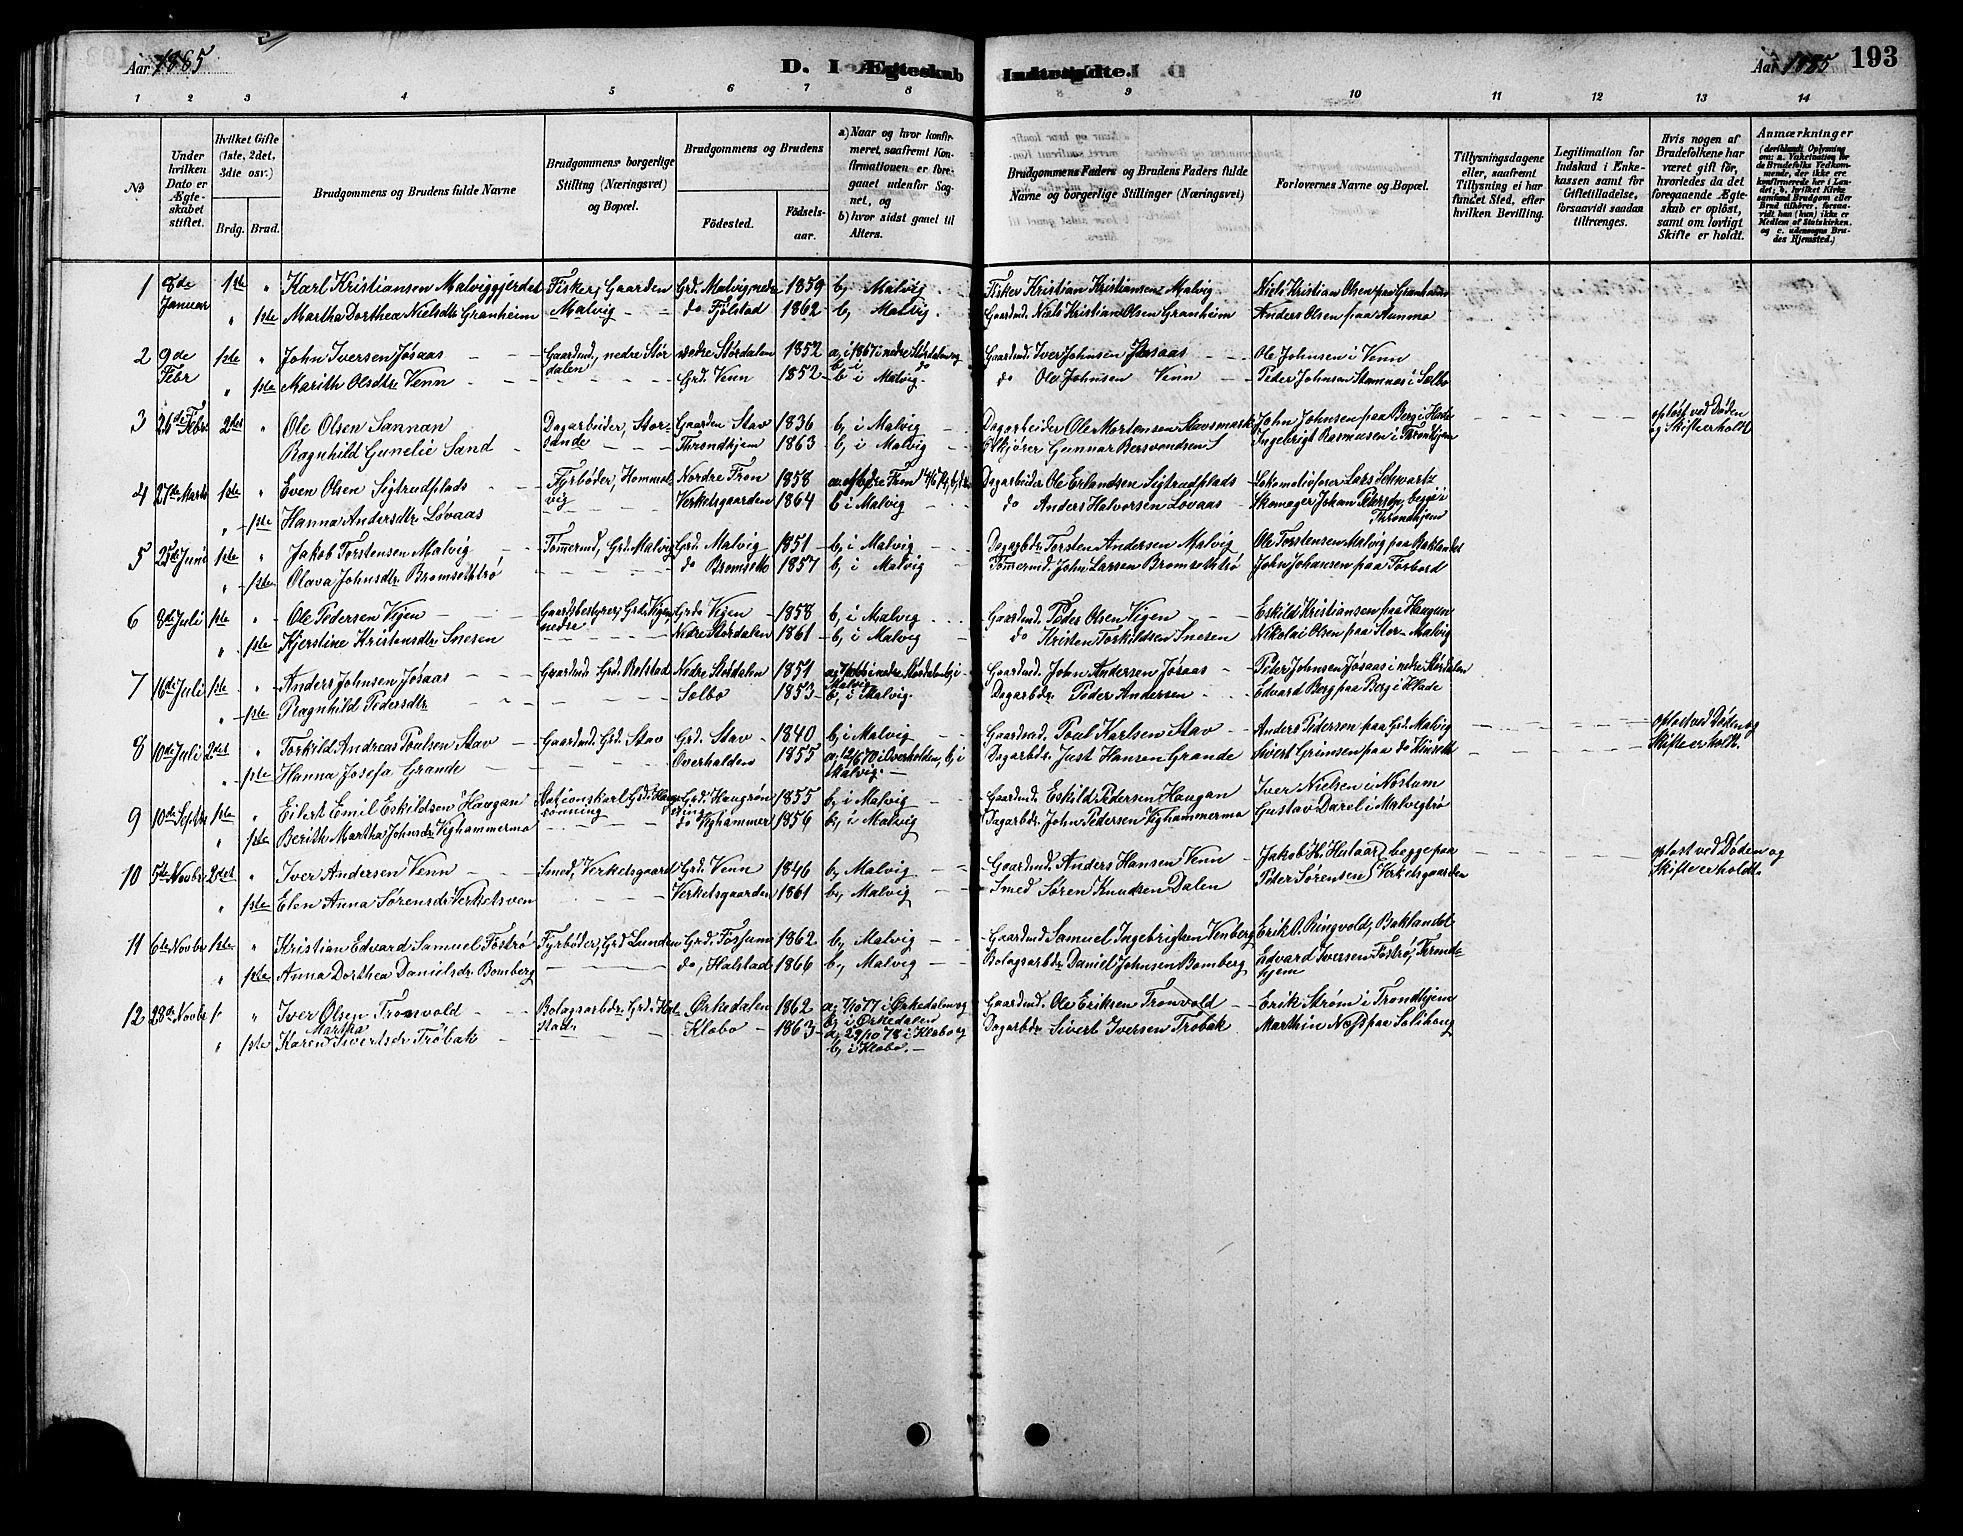 Aar 1885
D. I Ægteskab Indtraadte.
Aar 1885
193
1 2 3 4 5 6 7 8 9 10 11 12 13 14
No
Under hvilken Dato er Ægteskabet stiftet.
Hvilket Gifte (1ste, 2det, 3die osv.)
Brdg. Brud.
Brudgommens og Brudens fulde Navne
Brudgommens borgerlige Stilling (Næringsvei) og Bopæl.
Brudgommens og Brudens
Födested.
Födselsaar.
a) Naar og hvor konfirmeret, saafremt Konfirmationen er foregaaet udenfor Sognet, og
b) hvor sidst gaaet til Alters.
Brudgommens Faders og Brudens Faders fulde Navne og borgerlige Stillinger (Næringsvei)
Forlovernes Navne og Bopæl.
Tillysningsdagene eller, saafremt Tillysning ei har fundet Sted, efter hvilken Bevilling.
Legitimation for Indskud i Enkekassen samt for Giftetilladelse, forsaavidt saadan tiltrænges.
Hvis nogen af Brudefolkene har været gift för, hvorledes da det foregaaende Ægteskab er oplöst, samt om lovligt Skifte er holdt.
Anmærkninger
1 8de Januar 1ste " Karl Kristiansen Malviggjerdet Fisker, Gaarden Malvig Grd. Malvig nedre 1859 b, Malvig Fisker Kristian Kristiansen Malvig Niels Kristian Olsen paa Granheim
" 1ste Martha Dorthea Nielsdtr Granheim do Fjölstad 1862 b, Malvig. Gaardmd. Niels Kristian Olsen Granheim Anders Olsen paa Aunmo
2 9de Febr 1ste " John Iversen Jøsaas Gaardmd., nedre Stördalen nedre Stördalen 1852 a, i 1867 i nedre Stördalen og b i do Gaardmd. Iver Johnsen Jøsaas Ole Johnsen i Venn
" 1ste Marith Olsdtr Venn Grd. Venn 1852 b i Malvig. do Ole Johnsen Venn Peder Johnsen Stamnæs i Sælbo
3 26de Febr. 2det " Ole Olsen Sannan Dagarbeider, Storsande Gaarden Stav 1836 b, i Malvig Dagarbeider Ole Mortensen Stavsmark John Johnsen paa Berg i Lade opløst ved Døden og Skifte er holdt
Ragnhild Gunelie Sand Throndhjem 1863 b, i Malvig Gunnar Bersvendsen Ingebrigt Rasmusen i Thronhjem
4 27de Marts 1ste " Even Olsen Sigtrudplads Fyrbøder, Hommelvig Nordre Fron 1858 Dagarbeider Ole Erlandsen Sigtrudplads Lokomotivfører Lars Schwartz
" 1ste Hanna Andersdtr Lovaas Verketsgaarden 1864 b i Malvig do Anders Halvorsen Lovaas Skomager Johan Pedersen, begge i Throndhjem
5 25de Juni 1ste " Jakob Torstensen Malvig Tømermd, Grd. Malvig Grd. Malvig 1851 b, i Malvig Dagarbdr. Torsten Andersen Malvig Ole Torstensen Malvig paa Baklandet
" 1ste Olava Johnsdtr Bromsethtrø do Bromseth 1857 b, i Malvig Tømermd. John Larsen Bromsethtrø John Johansen paa Forbord
6 8de Juli 1ste " Ole Pedersen Vigen Gaardsbestyrer, Grd. Vigen nedre Grd. Vigen 1858 b, i Malvig Gaardmd. Peder Olsen Vigen Eskild Kristiansen paa Haugan
" 1ste Kjerstine Kristensdtr Snesen Nedre Stördalen 1861 b, i Malvig do Kristen Torkildsen Snesen Nikolai Olsen paa Stor-Malvig
7 16de Juli 1ste " Anders Johnsen Jøsaas Gaardmd Grd. Rolstad Nedre Stördalen 1851 a, i nedre Stördalen b, i Malvig Gaardmd. John Andersen Jøsaas Peder Johnsen Jøsaas i nedre Stördalen
" 1ste Ragnhild Pedersdtr Sælbo 1853 b, i Malvig. Dagarbdr. Peder Andersen Edvard Berg paa Berg i Lade
8 10de Juli 2det " Torkild Andreas Poulsen Stav Gaardmd Grd. Stav Grd. Stav 1840 b, i Malvig Gaardmd. Poul Karlsen Stav Anders Pedersen paa Grd. Malvig opløst ved Døden og Skifte er holdt.
" 1ste Hanna Josefa Grande Overhalden 1855 a, 12/6 70 i Overhalden, b, i Malvig. Dagarbdr. Just Hansen Grande Sivert Grimsen paa do
9 10de Septbr 1ste " Eilert Emil Eskildsen Haugan Stationskarl Grd. Haugan Grd. Haugrøn 1855 b, i Malvig Gaardmd. Eskild Pedersen Haugan Iver Nielsen i Nostum
" 1ste Berith Martha Johnsdr. Vighammermo do Vighammer 1856 b, i Malvig Dagarbdr. John Pedersen Vighammermo Gustav Darel i Malvigtrø
10 5te Novbr 2det " Iver Andersen Venn Smed, Verketsgaard Grd. Venn 1846 b, Malvig Gaardmd. Anders Hansen Venn Jakob H. Hulaas begge paa opløst ved Døden og Skifte er holdt.
" 1ste Elen Anna Sørensdr Verketsven Verketsgaarden 1861 b, Malvig Smed Søren Knudsen Dalen Peter Sørensen Verketsgaarden
11 6te Novbr 1ste " Kristian Edvard Samuel Fostrø Fyrbøder, Grd. Lunden Grd. Forsum 1862 b, Malvig Gaardmd Samuel Ingebrigtsen Venberg Erik O. Ringvold, Baklandet
" 1ste Anna Dorthea Danielsdr. Bomberg do, Halstad 1866 b, Malvig Bolagsarbdr. Daniel Johnsen Bomberg Edvard Iversen Fostrø, Trondhjem
12 28de Novbr 1 " Iver Olsen Tronvold Bolagsarbdr. Grd. Halstad. Ørkedalen 1862 a, 7/10 77 i Ørkedalen og b, i Ørkedalen Gaardmd. Ole Eriksen Tronvold Erik Strøm i Trondhjem
" 1ste Karen Martha Sivertsdr Trøbak Klæbo 1863 a, 29/10 78 i Klæbo og b, i Klæbo. Dagarbdr Sivert Iversen Trøbak Marthin Næss paa Solihaug